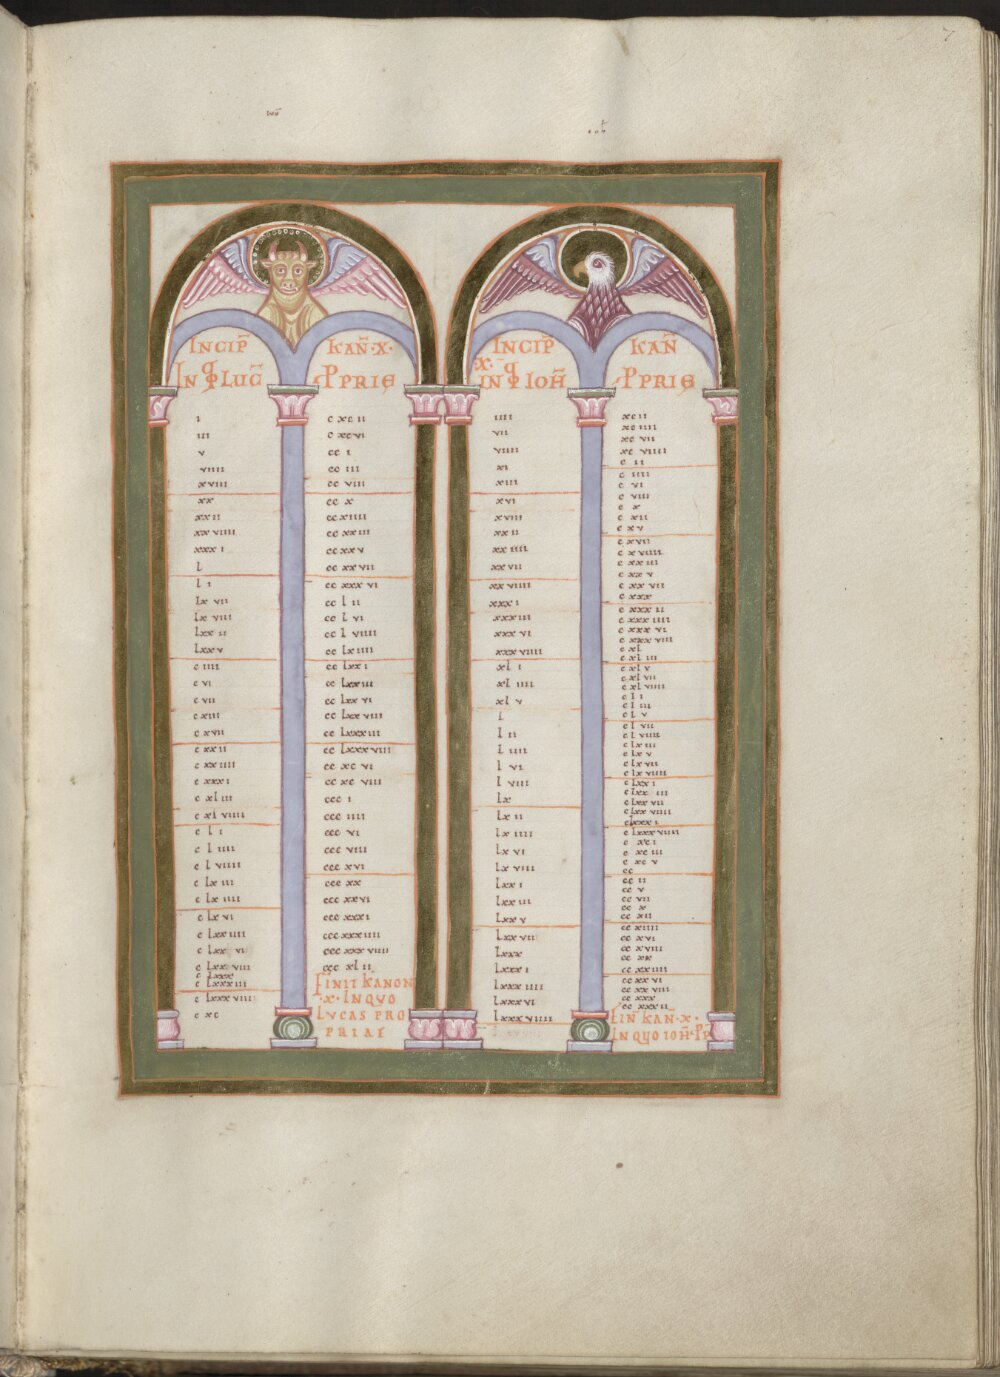 7
INCIP̄ KAÑ·X·
IN Q LUC̄ PPRIE
i
iii
v
viiii
xviii
xx
xxii
xxviiii
xxxi
l
li
lxvii
lxviiii
lxxii
lxxv
ciiii
cvi
cvii
cxiii
cxvii
cxxii
cxxiiii
cxxxi
cxliii
cxlviiii
cli
cliiii
clviiii
clxiii
clxiiii
clxvi
clxxiiii
clxxvi
clxxviii
clxxx
clxxxiii
clxxxviii
cxc
cxcii
cxcvi
cci
cciii
ccviii
ccx
ccxiiii
ccxxiii
ccxxv
ccxxvii
ccxxxvi
cclii
cclvi
cclviiii
cclxiiii
cclxxi
cclxxiii
cclxxvi
cclxxviiii
cclxxxiii
cclxxxviiii
ccxcvi
ccxcviii
ccci
ccciiii
cccvi
cccviii
cccxvi
cccxx
cccxxvi
cccxxxi
cccxxxiiii
cccxxxviiii
cccxlii
FINIT KANON
·X· IN QVO
LVCAS PRO
PRIAE
INCIP̄ KAÑ
X· IN Q IOH̄ PPRIE
iiii
vii
viiii
xi
xiii
xvi
xviii
xxii
xxiiii
xxvii
xxviiii
xxxi
xxxiii
xxxvi
xxxviiii
xli
xliiii
xlv
l
lii
liiii
lvi
lviii
lx
lxii
lxiiii
lxvi
lxviii
lxxi
lxxiii
lxxv
lxxvii
lxxx
lxxxi
lxxxiiii
lxxxvi
lxxxviiii
xcii
xciiii
xcvii
xcviiii
cii
ciiii
cvi
cviii
cx
cxii
cxv
cxvii
cxviiii
cxxiii
cxxv
cxxvii
cxxx
cxxxii
cxxxiiii
cxxxvi
cxxxviii
cxl
cxliii
cxlv
cxlvii
cxlviiii
cli
cliii
clv
clvii
clviiii
clxiii
clxv
clxvii
clxviiii
clxxi
clxxiii
clxxvii
clxxviiii
clxxxi
clxxxviiii
cxci
cxciii
cxcv
cc
ccii
ccv
ccvii
ccx
ccxii
ccxiiii
ccxvi
ccxviii
ccxx
ccxxiiii
ccxxvi
ccxxviii
ccxxx
ccxxxii
FIN̄ KAÑ·X·
IN QVO IOH̄·PP̄